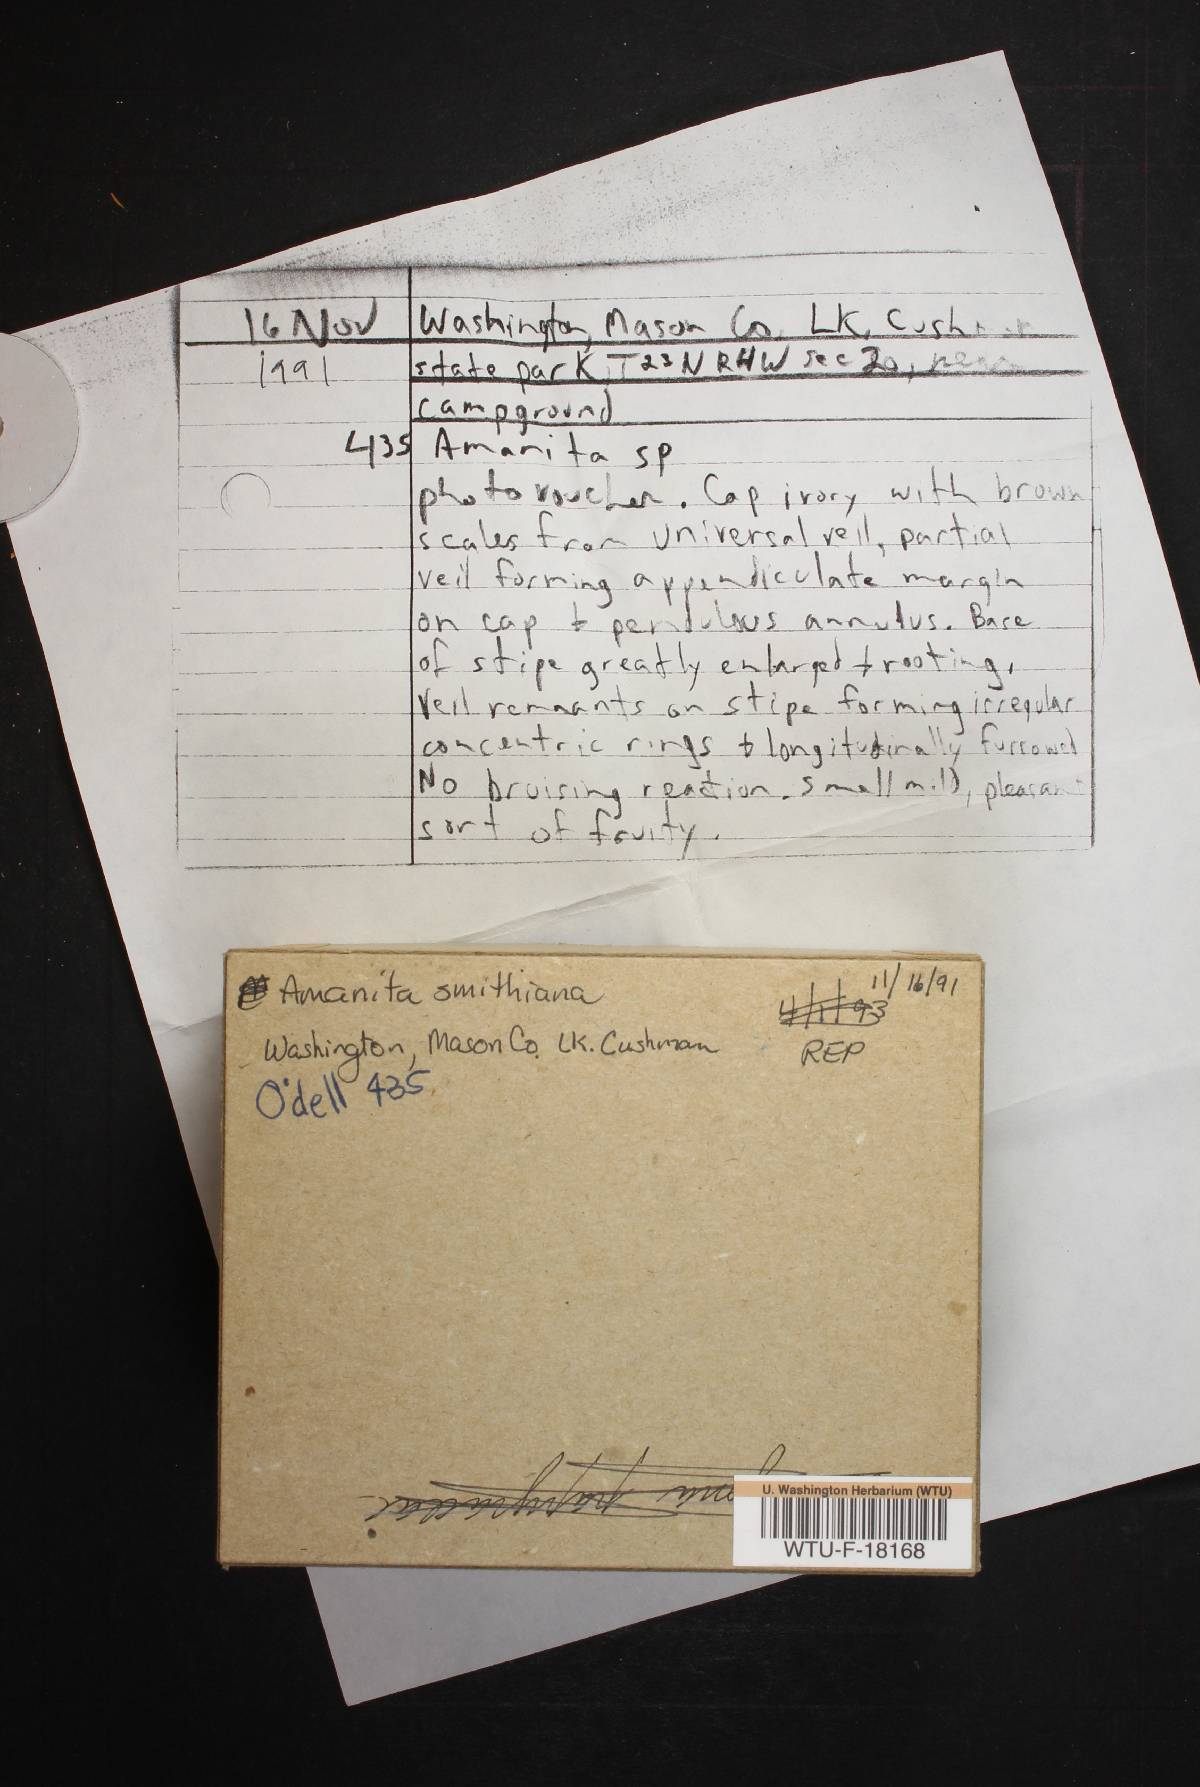 16 Nov Washington, Mason Co. LK. Cushman
1991 state park, T23N R4W sec 20, near
campground
435 Amanita sp
photo voucher. Cap ivory with brown
scales from universal veil, partial
veil forming appendiculate margin
on cap + pendulous annulus. Base
of stipe greatly enlarged + rooting,
veil remnants on stipe forming irregular
concentric rings + longitudinally furrowed
No bruising reaction. Smell mild, pleasant
sort of fruity.
Amanita smithiana 11/16/91
4/1/93
Washington, Mason Co. LK. Cushman REP
O'dell 435
U. Washington Herbarium (WTU)
WTU-F-18168